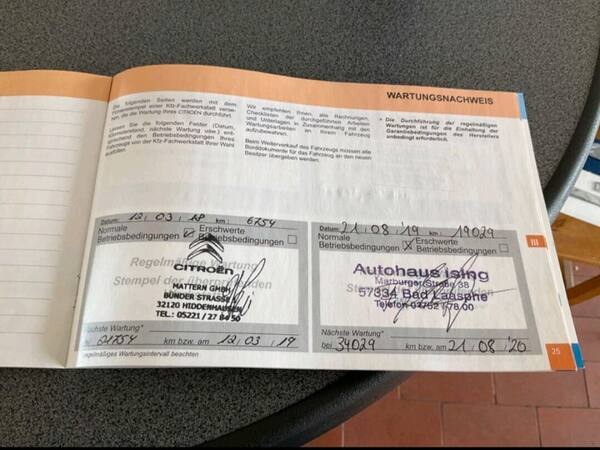 WARTUNGSNACHWEIS
Die folgenden Seiten werden mit dem
Firmenstempel einer Kfz-Fachwerkstatt verse-
hen, die die Wartung Ihres CITROËN durchführt.
Lassen Sie die folgenden Felder (Datum,
Kilometerstand, nächste Wartung usw.) ent-
sprechend den Betriebsbedingungen Ihres
Fahrzeugs von der Kfz-Fachwerkstatt Ihrer Wahl
ausfüllen.
Wir empfehlen Ihnen, alle Rechnungen,
Checklisten der durchgeführten Arbeiten
und Unterlagen in Zusammenhang mit den
Wartungsarbeiten an Ihrem Fahrzeug
aufzubewahren.
Beim Weiterverkauf des Fahrzeugs müssen alle
Borddokumente für das Fahrzeug an den neuen
Besitzer übergeben werden.
Die Durchführung der regelmäßigen
Wartungen ist für die Einhaltung der
Garantiebedingungen des Herstellers
unbedingt erforderlich.
Datum: 12 / 03 / 18 km: 6754
Normale Erschwerte
Betriebsbedingungen Betriebsbedingungen
Regelmäßige Wartung
Stempel der
CITROËN
MATTERN GMBH
BÜNDER STRASSE
32120 HIDDENHAUSEN
TEL.: 05221 / 27 84 50
Nächste Wartung*
bei km bzw. am 12 / 03 / 19
*regelmäßiges Wartungsintervall beachten
Datum: 21 / 08 / '19 km: 19029
Normale Erschwerte
Betriebsbedingungen X Betriebsbedingungen
Autohaus Ising
Marburger Straße 38
57334 Bad Laasphe
Nächste Wartung*
bei 34029 km bzw. am 21 / 08 / '20
III
25